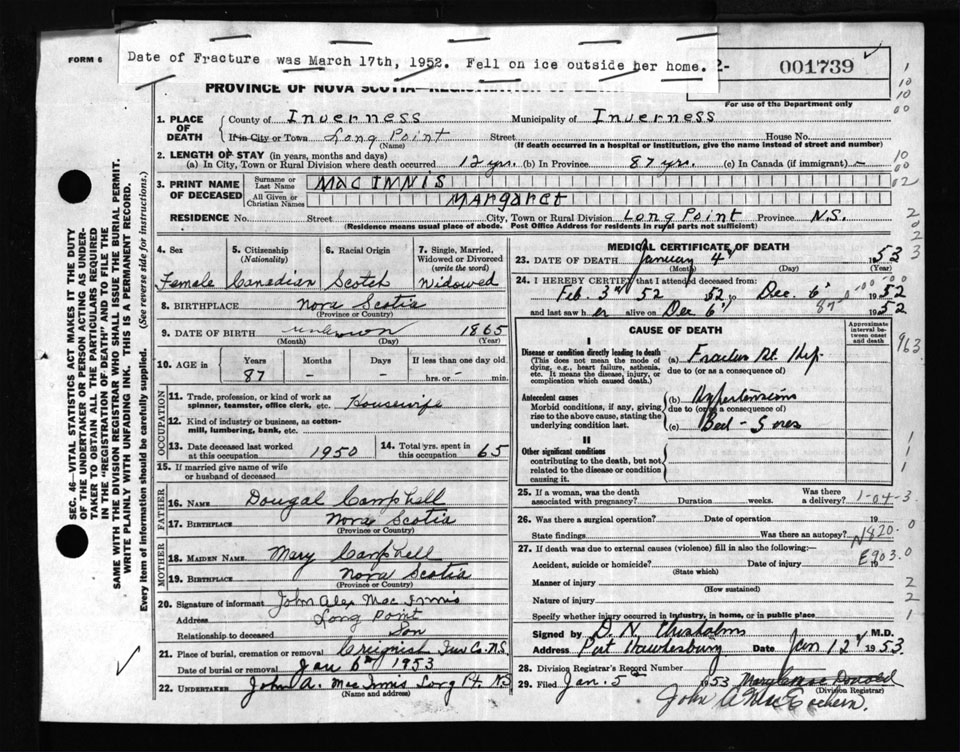 FORM 6
Date of Fracture was March 17th, 1952. Fell on ice outside her home.
2- 001739
PROVINCE OF NOVA SCOTIA—REGISTRATION OF DEATH
For use of the Department only
1. PLACE OF DEATH
County of Inverness Municipality of Inverness
If in City or Town Long Point Street House No.
(Name) (If death occurred in a hospital or institution, give the name instead of street and number)
2. LENGTH OF STAY (in years, months and days)
(a) In City, Town or Rural Division where death occurred 12 yrs. (b) In Province 87 yrs. (c) In Canada (if immigrant) –
3. PRINT NAME OF DECEASED
Surname or Last Name MAC INNIS
All Given or Christian Names Margaret
RESIDENCE No. Street City, Town or Rural Division Long Point Province N.S.
(Residence means usual place of abode. Post Office Address for residents in rural parts not sufficient)
4. Sex Female
5. Citizenship (Nationality) Canadian
6. Racial Origin Scotch
7. Single, Married, Widowed or Divorced (write the word) Widowed
8. BIRTHPLACE Nova Scotia
(Province or Country)
9. DATE OF BIRTH unknown 1865
(Month) (Day) (Year)
10. AGE in Years 87 Months – Days – If less than one day old hrs. or – min.
OCCUPATION
11. Trade, profession, or kind of work as spinner, teamster, office clerk, etc. Housewife
12. Kind of industry or business, as cotton-mill, lumbering, bank, etc.
13. Date deceased last worked at this occupation 1950
14. Total yrs. spent in this occupation 65
15. If married give name of wife or husband of deceased
FATHER
16. NAME Dougal Campbell
17. BIRTHPLACE Nova Scotia
(Province or Country)
MOTHER
18. MAIDEN NAME Mary Campbell
19. BIRTHPLACE Nova Scotia
(Province or Country)
20. Signature of informant John Alex Mac Innis
Address Long Point
Relationship to deceased Son
21. Place of burial, cremation or removal Creignish Inv Co. N.S.
Date of burial or removal Jan 6th 1953
22. UNDERTAKER John A. Mac Innis Long Pt. N.S
(Name and address)
MEDICAL CERTIFICATE OF DEATH
23. DATE OF DEATH January 4th 1953
(Month) (Day) (Year)
24. I HEREBY CERTIFY that I attended deceased from
Feb. 3rd 52 to Dec. 6th 1952
and last saw her alive on Dec 6th 1952
CAUSE OF DEATH
Approximate interval between onset and death
I
Disease or condition directly leading to death (a) Fracture Rt. Hip.
(This does not mean the mode of dying, e.g., heart failure, asthenia, etc. It means the disease, injury, or complication which caused death.)
due to (or as a consequence of)
Antecedent causes (b) Hypertension
Morbid conditions, if any, giving rise to the above cause, stating the underlying condition last.
due to (or as a consequence of)
(c) Bed - Sores
II
Other significant conditions contributing to the death, but not related to the disease or condition causing it.
25. If a woman, was the death associated with pregnancy? Duration weeks. Was there a delivery? 1-04-3
26. Was there a surgical operation? Date of operation 19
State findings Was there an autopsy?
N820.0
27. If death was due to external causes (violence) fill in also the following:—
E903.0
Accident, suicide or homicide? Date of injury 19
(State which)
Manner of injury
(How sustained)
Nature of injury
Specify whether injury occurred in industry, in home, or in public place
Signed by D. N. Chisholm M.D.
Address Port Hawkesbury Date Jan 12th 1953
28. Division Registrar's Record Number
29. Filed Jan. 5th 1953
(Division Registrar)
John A. MacEachern.
SEC. 46—VITAL STATISTICS ACT MAKES IT THE DUTY
OF THE UNDERTAKER OR PERSON ACTING AS UNDER-
TAKER TO OBTAIN ALL THE PARTICULARS REQUIRED
IN THE "REGISTRATION OF DEATH" AND TO FILE THE
SAME WITH THE DIVISION REGISTRAR WHO SHALL ISSUE THE BURIAL PERMIT.
WRITE PLAINLY WITH UNFADING INK. THIS IS A PERMANENT RECORD.
Every item of information should be carefully supplied. (See reverse side for instructions.)